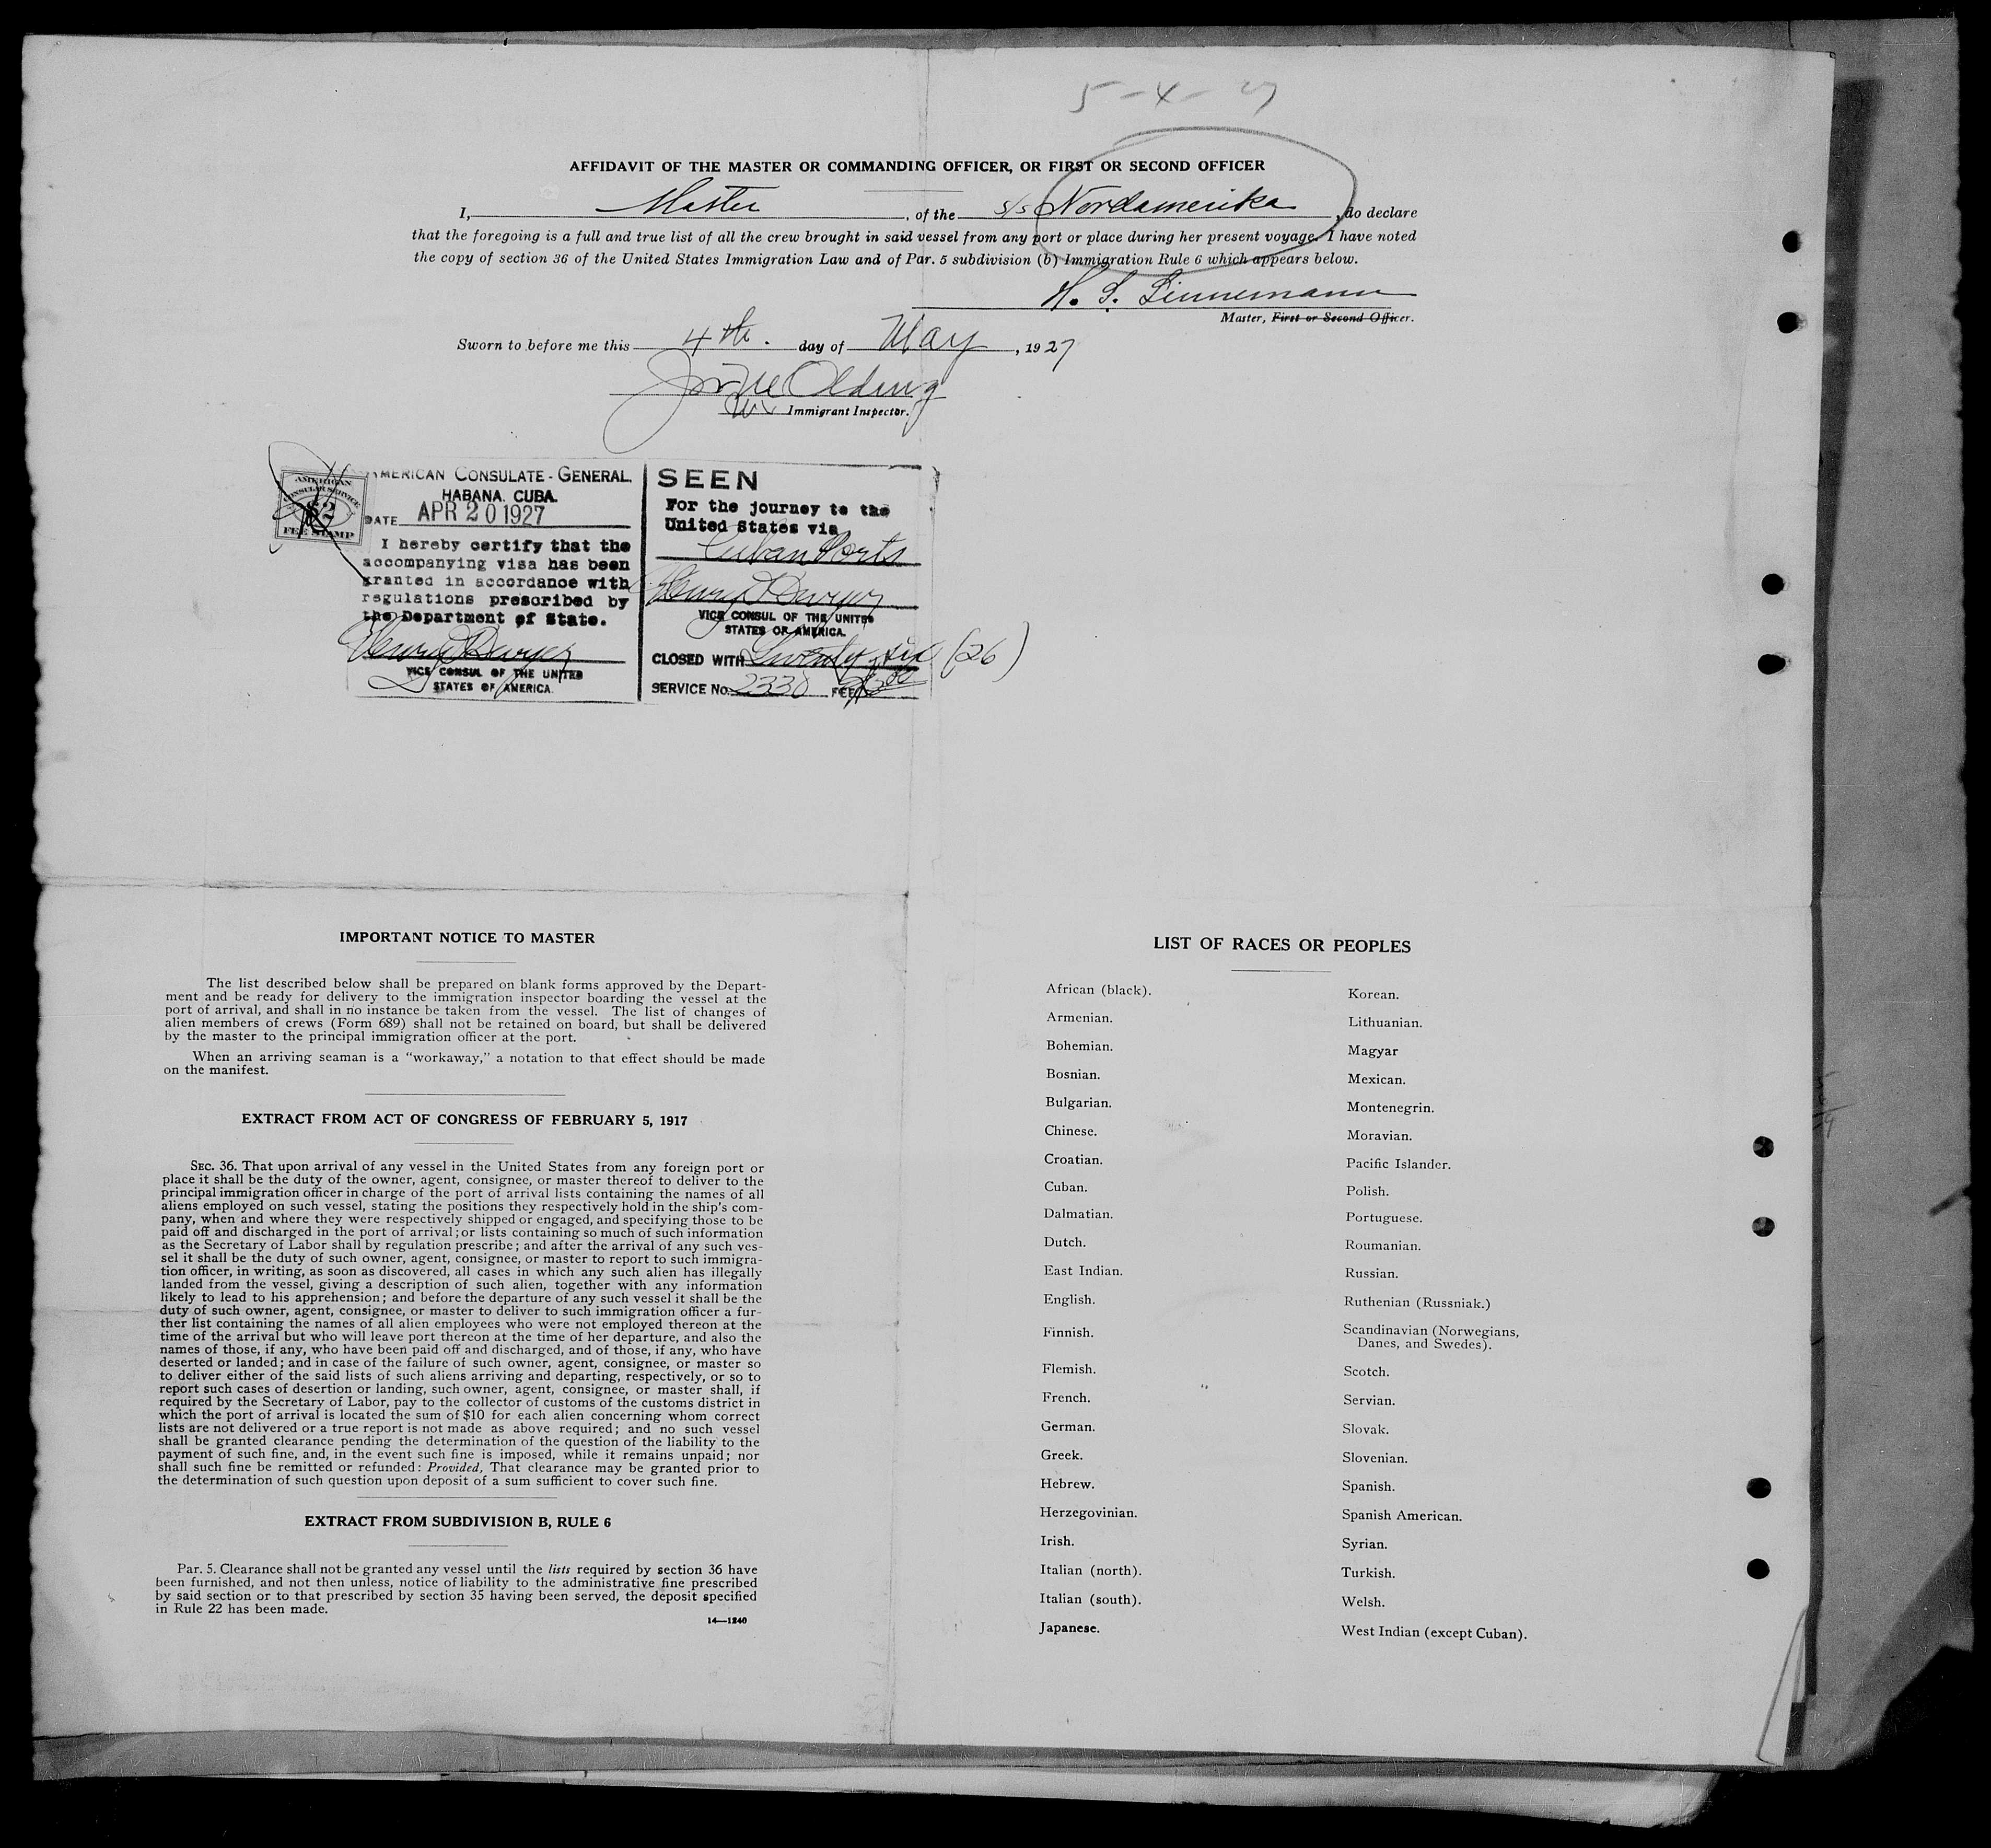 5-4-27
AFFIDAVIT OF THE MASTER OR COMMANDING OFFICER, OR FIRST OR SECOND OFFICER
I, Master, of the s/s Nordamerika, do declare
that the foregoing is a full and true list of all the crew brought in said vessel from any port or place during her present voyage. I have noted
the copy of section 36 of the United States Immigration Law and of Par. 5 subdivision (b) Immigration Rule 6 which appears below.
H. S. Linnemann
Master, First or Second Officer.
Sworn to before me this 4th. day of May, 1927
Olding
Immigrant Inspector.
AMERICAN
CONSULAR SERVICE
$2
FEE STAMP
AMERICAN CONSULATE-GENERAL.
HABANA. CUBA.
DATE APR 20 1927
I hereby certify that the
accompanying visa has been
granted in accordance with
regulations prescribed by
the Department of State.
Henry Dwyer
VICE CONSUL OF THE UNITED
STATES OF AMERICA.
SEEN
For the journey to the
United States via
Cuban Ports
Henry Dwyer
VICE CONSUL OF THE UNITED
STATES OF AMERICA.
CLOSED WITH Twenty six (26)
SERVICE No. 2330 FEE
IMPORTANT NOTICE TO MASTER
The list described below shall be prepared on blank forms approved by the Depart-
ment and be ready for delivery to the immigration inspector boarding the vessel at the
port of arrival, and shall in no instance be taken from the vessel. The list of changes of
alien members of crews (Form 689) shall not be retained on board, but shall be delivered
by the master to the principal immigration officer at the port.
When an arriving seaman is a "workaway," a notation to that effect should be made
on the manifest.
EXTRACT FROM ACT OF CONGRESS OF FEBRUARY 5, 1917
SEC. 36. That upon arrival of any vessel in the United States from any foreign port or
place it shall be the duty of the owner, agent, consignee, or master thereof to deliver to the
principal immigration officer in charge of the port of arrival lists containing the names of all
aliens employed on such vessel, stating the positions they respectively hold in the ship's com-
pany, when and where they were respectively shipped or engaged, and specifying those to be
paid off and discharged in the port of arrival; or lists containing so much of such information
as the Secretary of Labor shall by regulation prescribe; and after the arrival of any such ves-
sel it shall be the duty of such owner, agent, consignee, or master to report to such immigra-
tion officer, in writing, as soon as discovered, all cases in which any such alien has illegally
landed from the vessel, giving a description of such alien, together with any information
likely to lead to his apprehension; and before the departure of any such vessel it shall be the
duty of such owner, agent, consignee, or master to deliver to such immigration officer a fur-
ther list containing the names of all alien employees who were not employed thereon at the
time of the arrival but who will leave port thereon at the time of her departure, and also the
names of those, if any, who have been paid off and discharged, and of those, if any, who have
deserted or landed; and in case of the failure of such owner, agent, consignee, or master so
to deliver either of the said lists of such aliens arriving and departing, respectively, or so to
report such cases of desertion or landing, such owner, agent, consignee, or master shall, if
required by the Secretary of Labor, pay to the collector of customs of the customs district in
which the port of arrival is located the sum of $10 for each alien concerning whom correct
lists are not delivered or a true report is not made as above required; and no such vessel
shall be granted clearance pending the determination of the question of the liability to the
payment of such fine, and, in the event such fine is imposed, while it remains unpaid; nor
shall such fine be remitted or refunded: Provided, That clearance may be granted prior to
the determination of such question upon deposit of a sum sufficient to cover such fine.
EXTRACT FROM SUBDIVISION B, RULE 6
Par. 5. Clearance shall not be granted any vessel until the lists required by section 36 have
been furnished, and not then unless, notice of liability to the administrative fine prescribed
by said section or to that prescribed by section 35 having been served, the deposit specified
in Rule 22 has been made.
14—1240
LIST OF RACES OR PEOPLES
African (black).
Armenian.
Bohemian.
Bosnian.
Bulgarian.
Chinese.
Croatian.
Cuban.
Dalmatian.
Dutch.
East Indian.
English.
Finnish.
Flemish.
French.
German.
Greek.
Hebrew.
Herzegovinian.
Irish.
Italian (north).
Italian (south).
Japanese.
Korean.
Lithuanian.
Magyar
Mexican.
Montenegrin.
Moravian.
Pacific Islander.
Polish.
Portuguese.
Roumanian.
Russian.
Ruthenian (Russniak.)
Scandinavian (Norwegians,
Danes, and Swedes).
Scotch.
Servian.
Slovak.
Slovenian.
Spanish.
Spanish American.
Syrian.
Turkish.
Welsh.
West Indian (except Cuban).